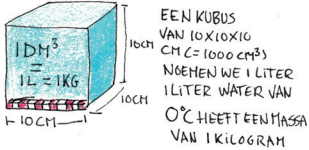 1DM³
=
1L = 1KG
10CM
10CM
10CM
EEN KUBUS
VAN 10X10X10
CM (=1000CM³)
NOEMEN WE 1 LITER
1 LITER WATER VAN
0°C HEEFT EEN MASSA
VAN 1 KILOGRAM